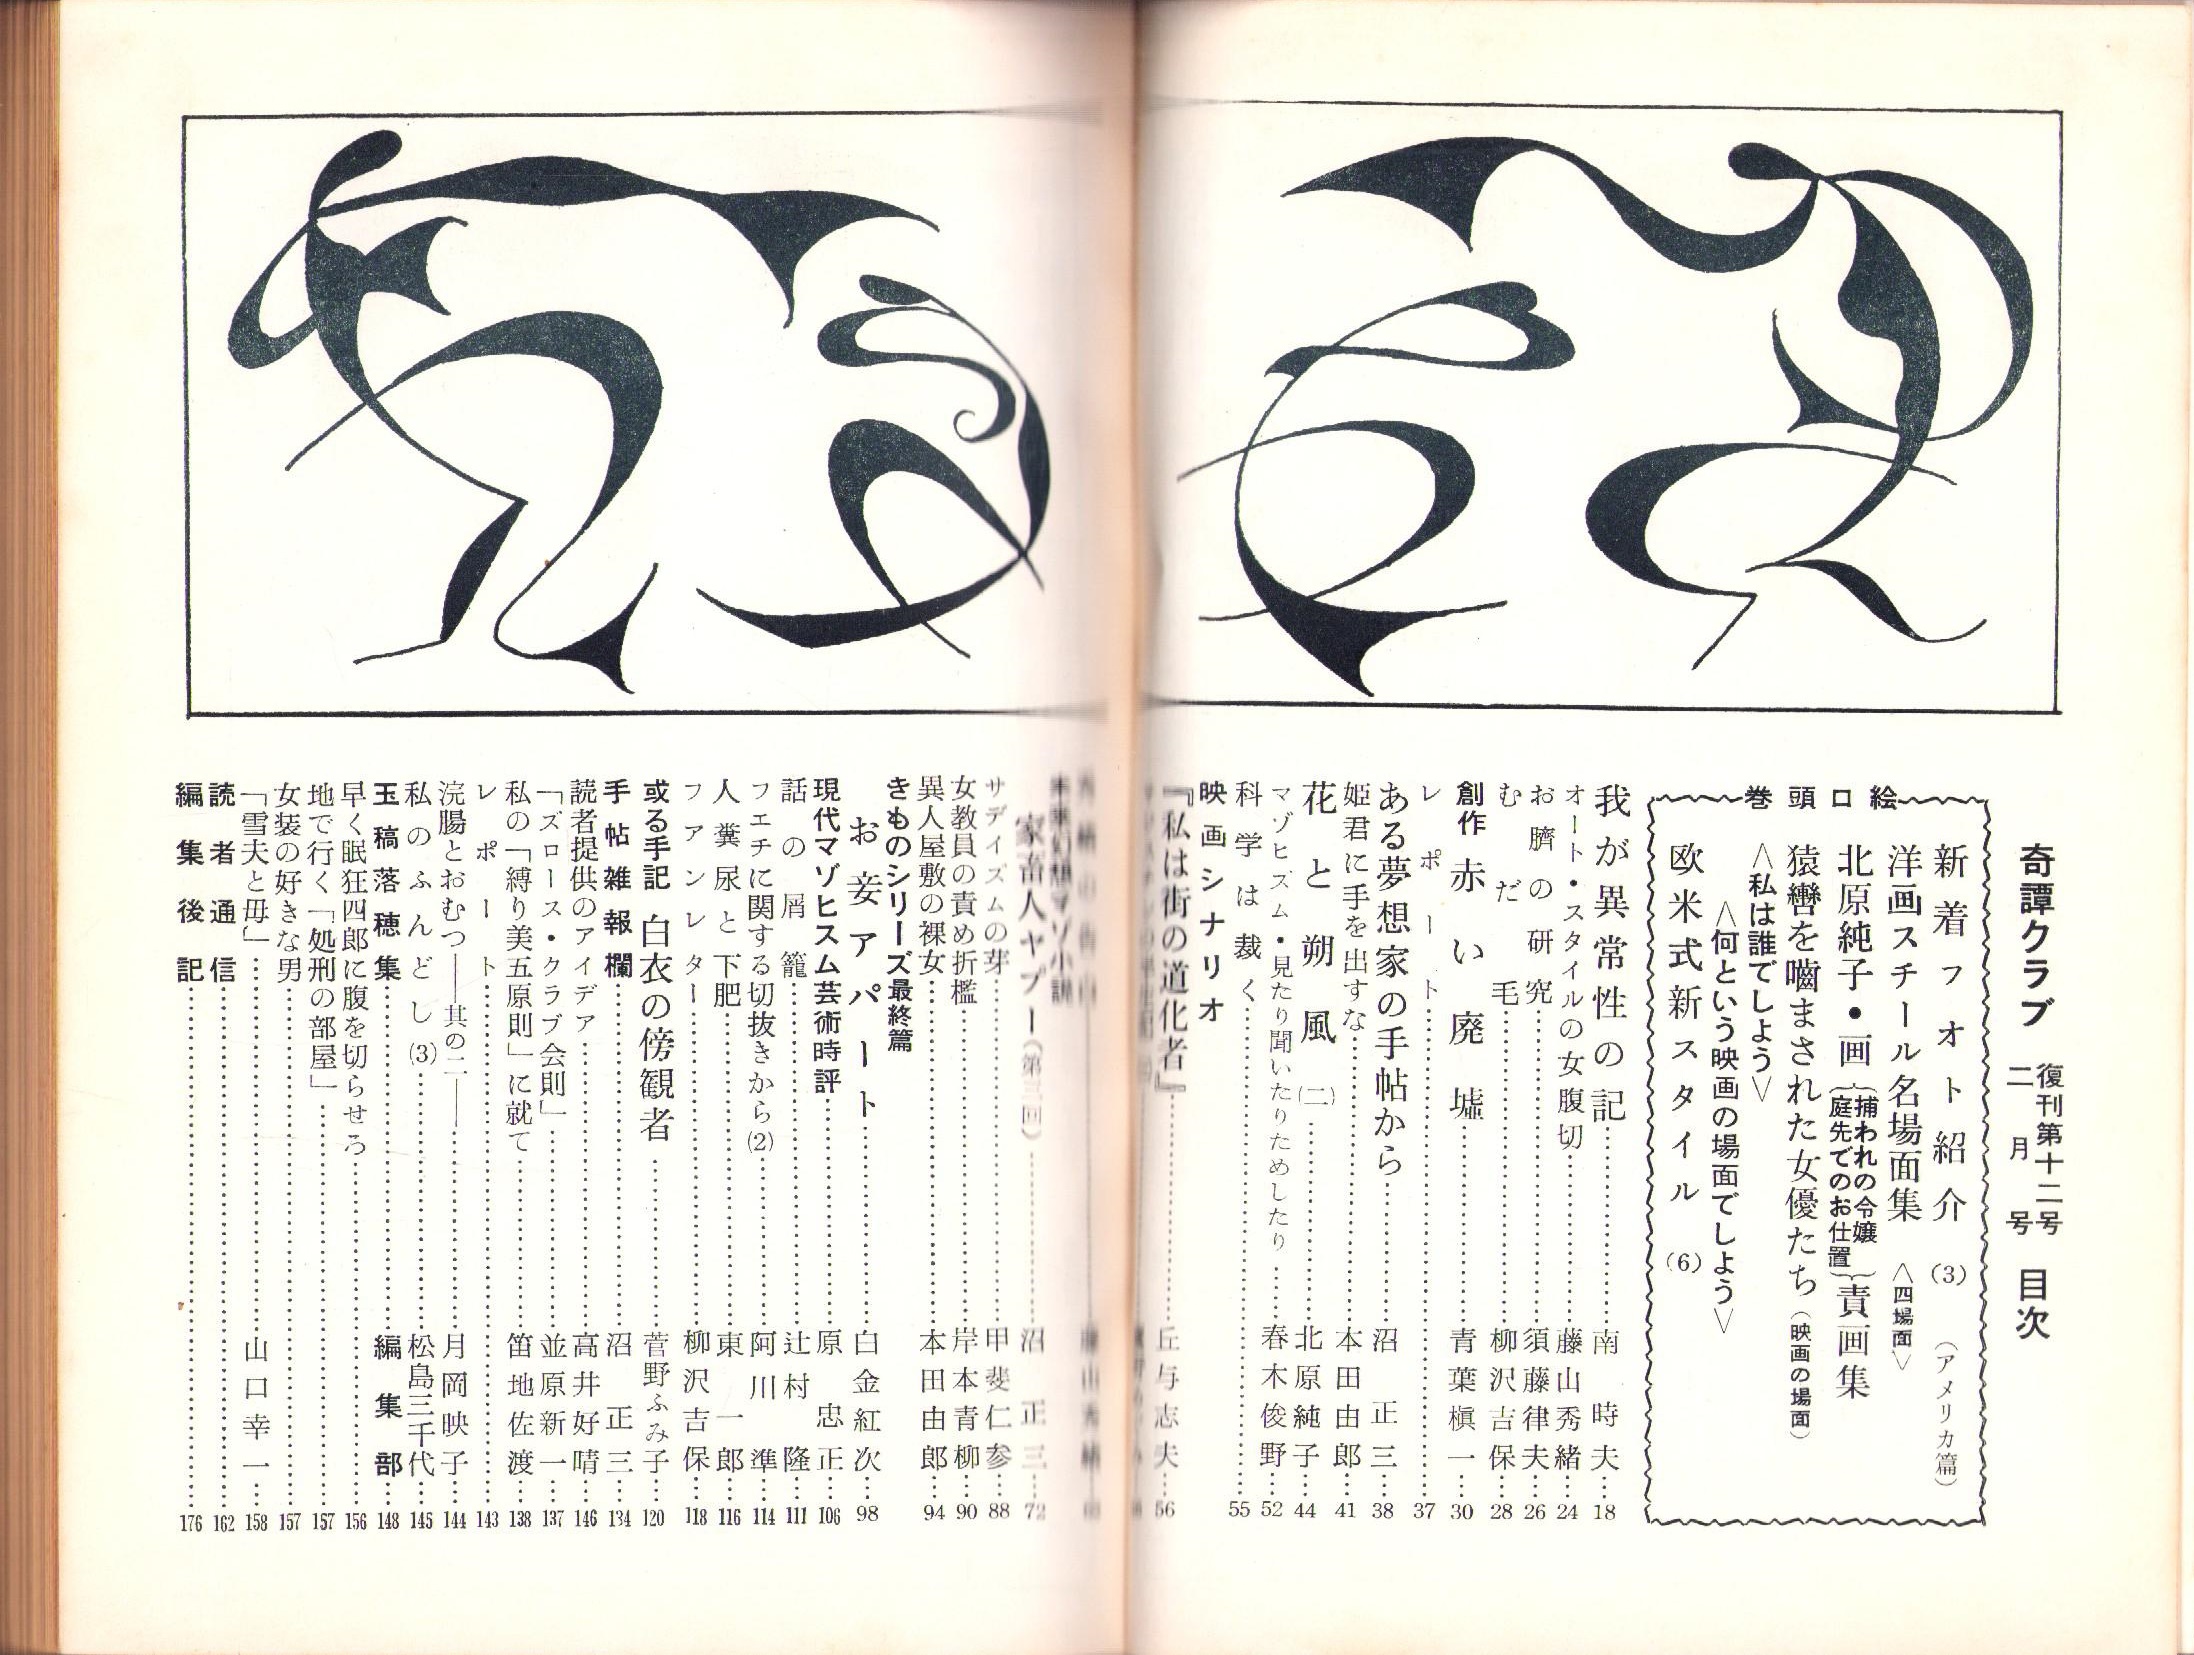 奇譚クラブ 復刊第十二号 二月号 目次
巻頭口絵
新着フオト紹介 (3) (アメリカ篇)
洋画スチール名場面集 <四場面>
北原純子・画 {捕われの令嬢 庭先でのお仕置} 責画集
猿轡を嚙まされた女優たち (映画の場面)
<私は誰でしよう>
<何という映画の場面でしよう>
欧米式新スタイル (6)
我が異常性の記……南時夫…18
オート・スタイルの女腹切……藤山秀緒…24
お臍の研究……須藤律夫…26
むだ毛……柳沢吉保…28
創作 赤い廃墟……青葉槇一…30
レポート……37
ある夢想家の手帖から……沼正三…38
姫君に手を出すな……本田由郎…41
花と朔風 (二)……北原純子…44
マゾヒズム・見たり聞いたりためしたり……春木俊野…52
科学は裁く……55
映画シナリオ
『私は街の道化者』……丘与志夫…56
家畜人ヤプー (第三回)……沼正三…72
サデイズムの芽……甲斐仁参…88
女教員の責め折檻……岸本青柳…90
異人屋敷の裸女……本田由郎…94
きものシリーズ最終篇
お妾アパート……白金紅次…98
現代マゾヒスム芸術時評……原忠正…106
話の屑籠……辻村隆…111
フェチに関する切抜きから(2)……阿川準…114
人糞尿と下肥……東一郎…116
フアンレター……柳沢吉保…118
或る手記 白衣の傍観者……菅野ふみ子…120
手帖雑報欄……沼正三…134
読者提供のアイデア……高井好晴…146
「ズロース・クラブ会則」……並原新一…137
私の「縛り美五原則」に就て……笛地佐渡…138
レポート……143
浣腸とおむつ――其の二――……月岡映子…144
私のふんどし(3)……松島三千代…145
玉稿落穂集……編集部…148
早く眠狂四郎に腹を切らせろ……156
地で行く「処刑の部屋」……157
女装の好きな男……157
「雪夫と毋」……山口幸一…158
読者通信……162
編集後記……176